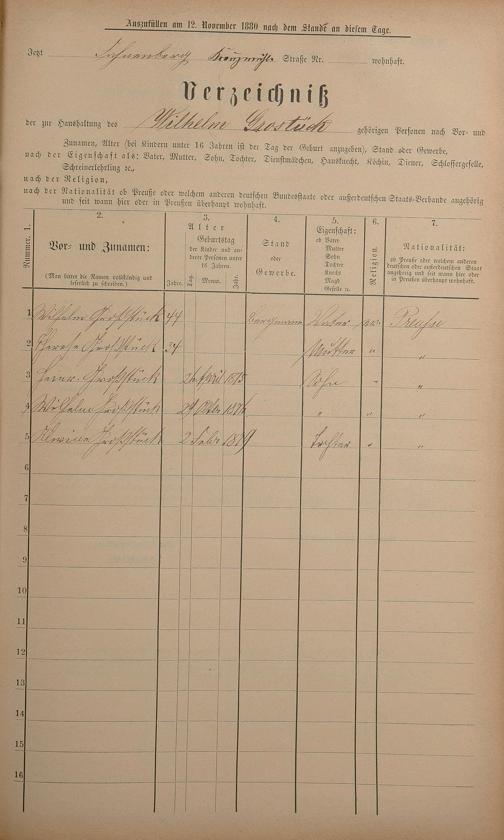 Auszufüllen am 12. November 1880 nach dem Stande an diesem Tage.
Jetzt Straße Nr. wohnhaft.
Verzeichniß
der zur Haushaltung des Wilhelm Grostück gehörigen Personen nach Vor- und
Zunamen, Alter (bei Kindern unter 16 Jahren ist der Tag der Geburt anzugeben), Stand oder Gewerbe,
nach der Eigenschaft als: Vater, Mutter, Sohn, Tochter, Dienstmädchen, Hausknecht, Köchin, Diener, Schlossergeselle,
Schreinerlehrling ꝛc.,
nach der Religion,
nach der Nationalität ob Preuße oder welchem anderen deutschen Bundesstaate oder außerdeutschen Staats-Verbande angehörig
und seit wann hier oder in Preußen überhaupt wohnhaft.
Nummer. 1.
2.
Vor- und Zunamen:
(Man bittet die Namen vollständig und leserlich zu schreiben.)
3.
Alter
Jahre.
Geburtstag
der Kinder und anderer Personen unter 16 Jahren.
Tag. Monat. Jahr.
4.
Stand
oder
Gewerbe.
5.
Eigenschaft:
ob Vater
Mutter
Sohn
Tochter
Knecht
Magd
Geselle u.
6.
Religion.
7.
Nationalität:
ob Preuße oder welchem anderen deutschen oder außerdeutschen Staat angehörig und seit wann hier oder in Preußen überhaupt wohnhaft.
1 Wilhelm Großstück 44 Bergmann Vater ev. Preuße
2 Therese Großstück 34 Mutter " "
3 Großstück 26 April 1875 Sohn " "
4 Wilhelm Großstück 29 Oktbr 1876 " " "
5 Großstück 2 Febr 1879 Tochter " "
6
7
8
9
10
11
12
13
14
15
16